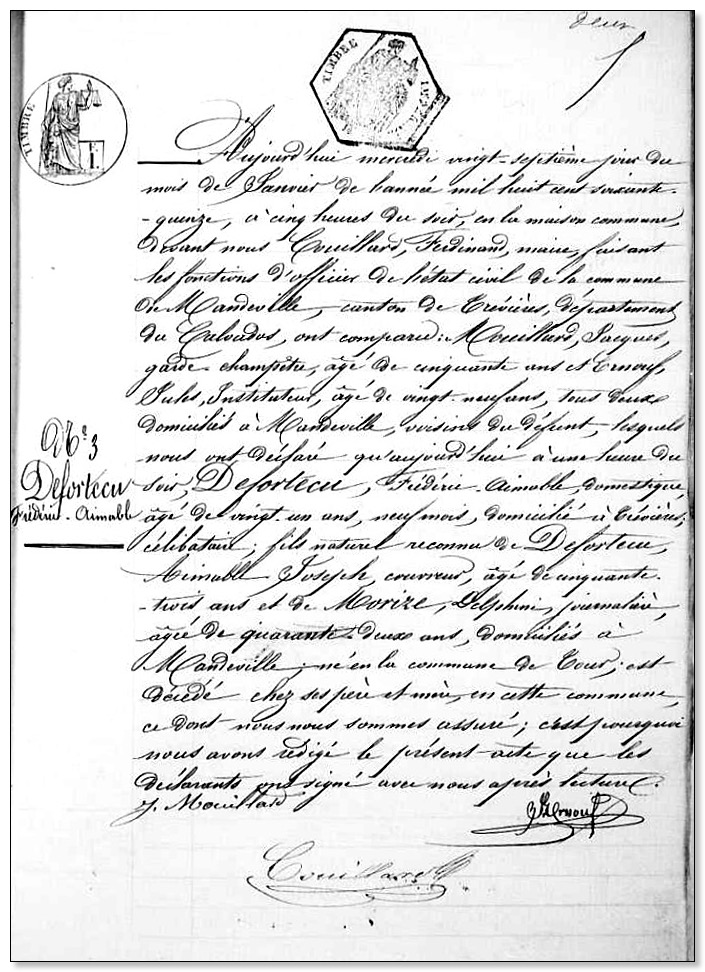 deux
TIMBRE
TIMBRE
Aujourd'hui mercredi vingt-septième jour du
mois de Janvier de l'année mil huit cent soixante-
-quinze, à cinq heures du soir, en la maison commune,
devant nous Couillard, Ferdinand, maire, faisant
les fonctions d'officier de l'état civil de la commune
de Mandeville, canton de Trévières, département
du Calvados, ont comparu: Mouillard, Jacques,
garde-champêtre, âgé de cinquante ans et Ernouf,
Jules, Instituteur, âgé de vingt-neuf ans, tous deux
domiciliés à Mandeville, voisins du défunt, lesquels
nous ont déclaré qu'aujourd'hui à une heure du
soir, Defortecu, Frédéric-Aimable, domestique,
âgé de vingt-un ans, neuf mois, domicilié à Trévières;
célibataire; fils naturel reconnu de Defortecu,
Aimable Joseph, couvreur, âgé de cinquante-
-trois ans et de Morize, Delphine, journalière,
âgée de quarante-deux ans, domiciliés à
Mandeville; né en la commune de Tour; est
décédé chez ses père et mère, en cette commune,
ce dont nous nous sommes assuré; c'est pourquoi
nous avons rédigé le présent acte que les
déclarants ont signé avec nous après lecture.
J. Mouillard
Ernouf
Couillard
N° 3
Defortecu
Frédéric-Aimable